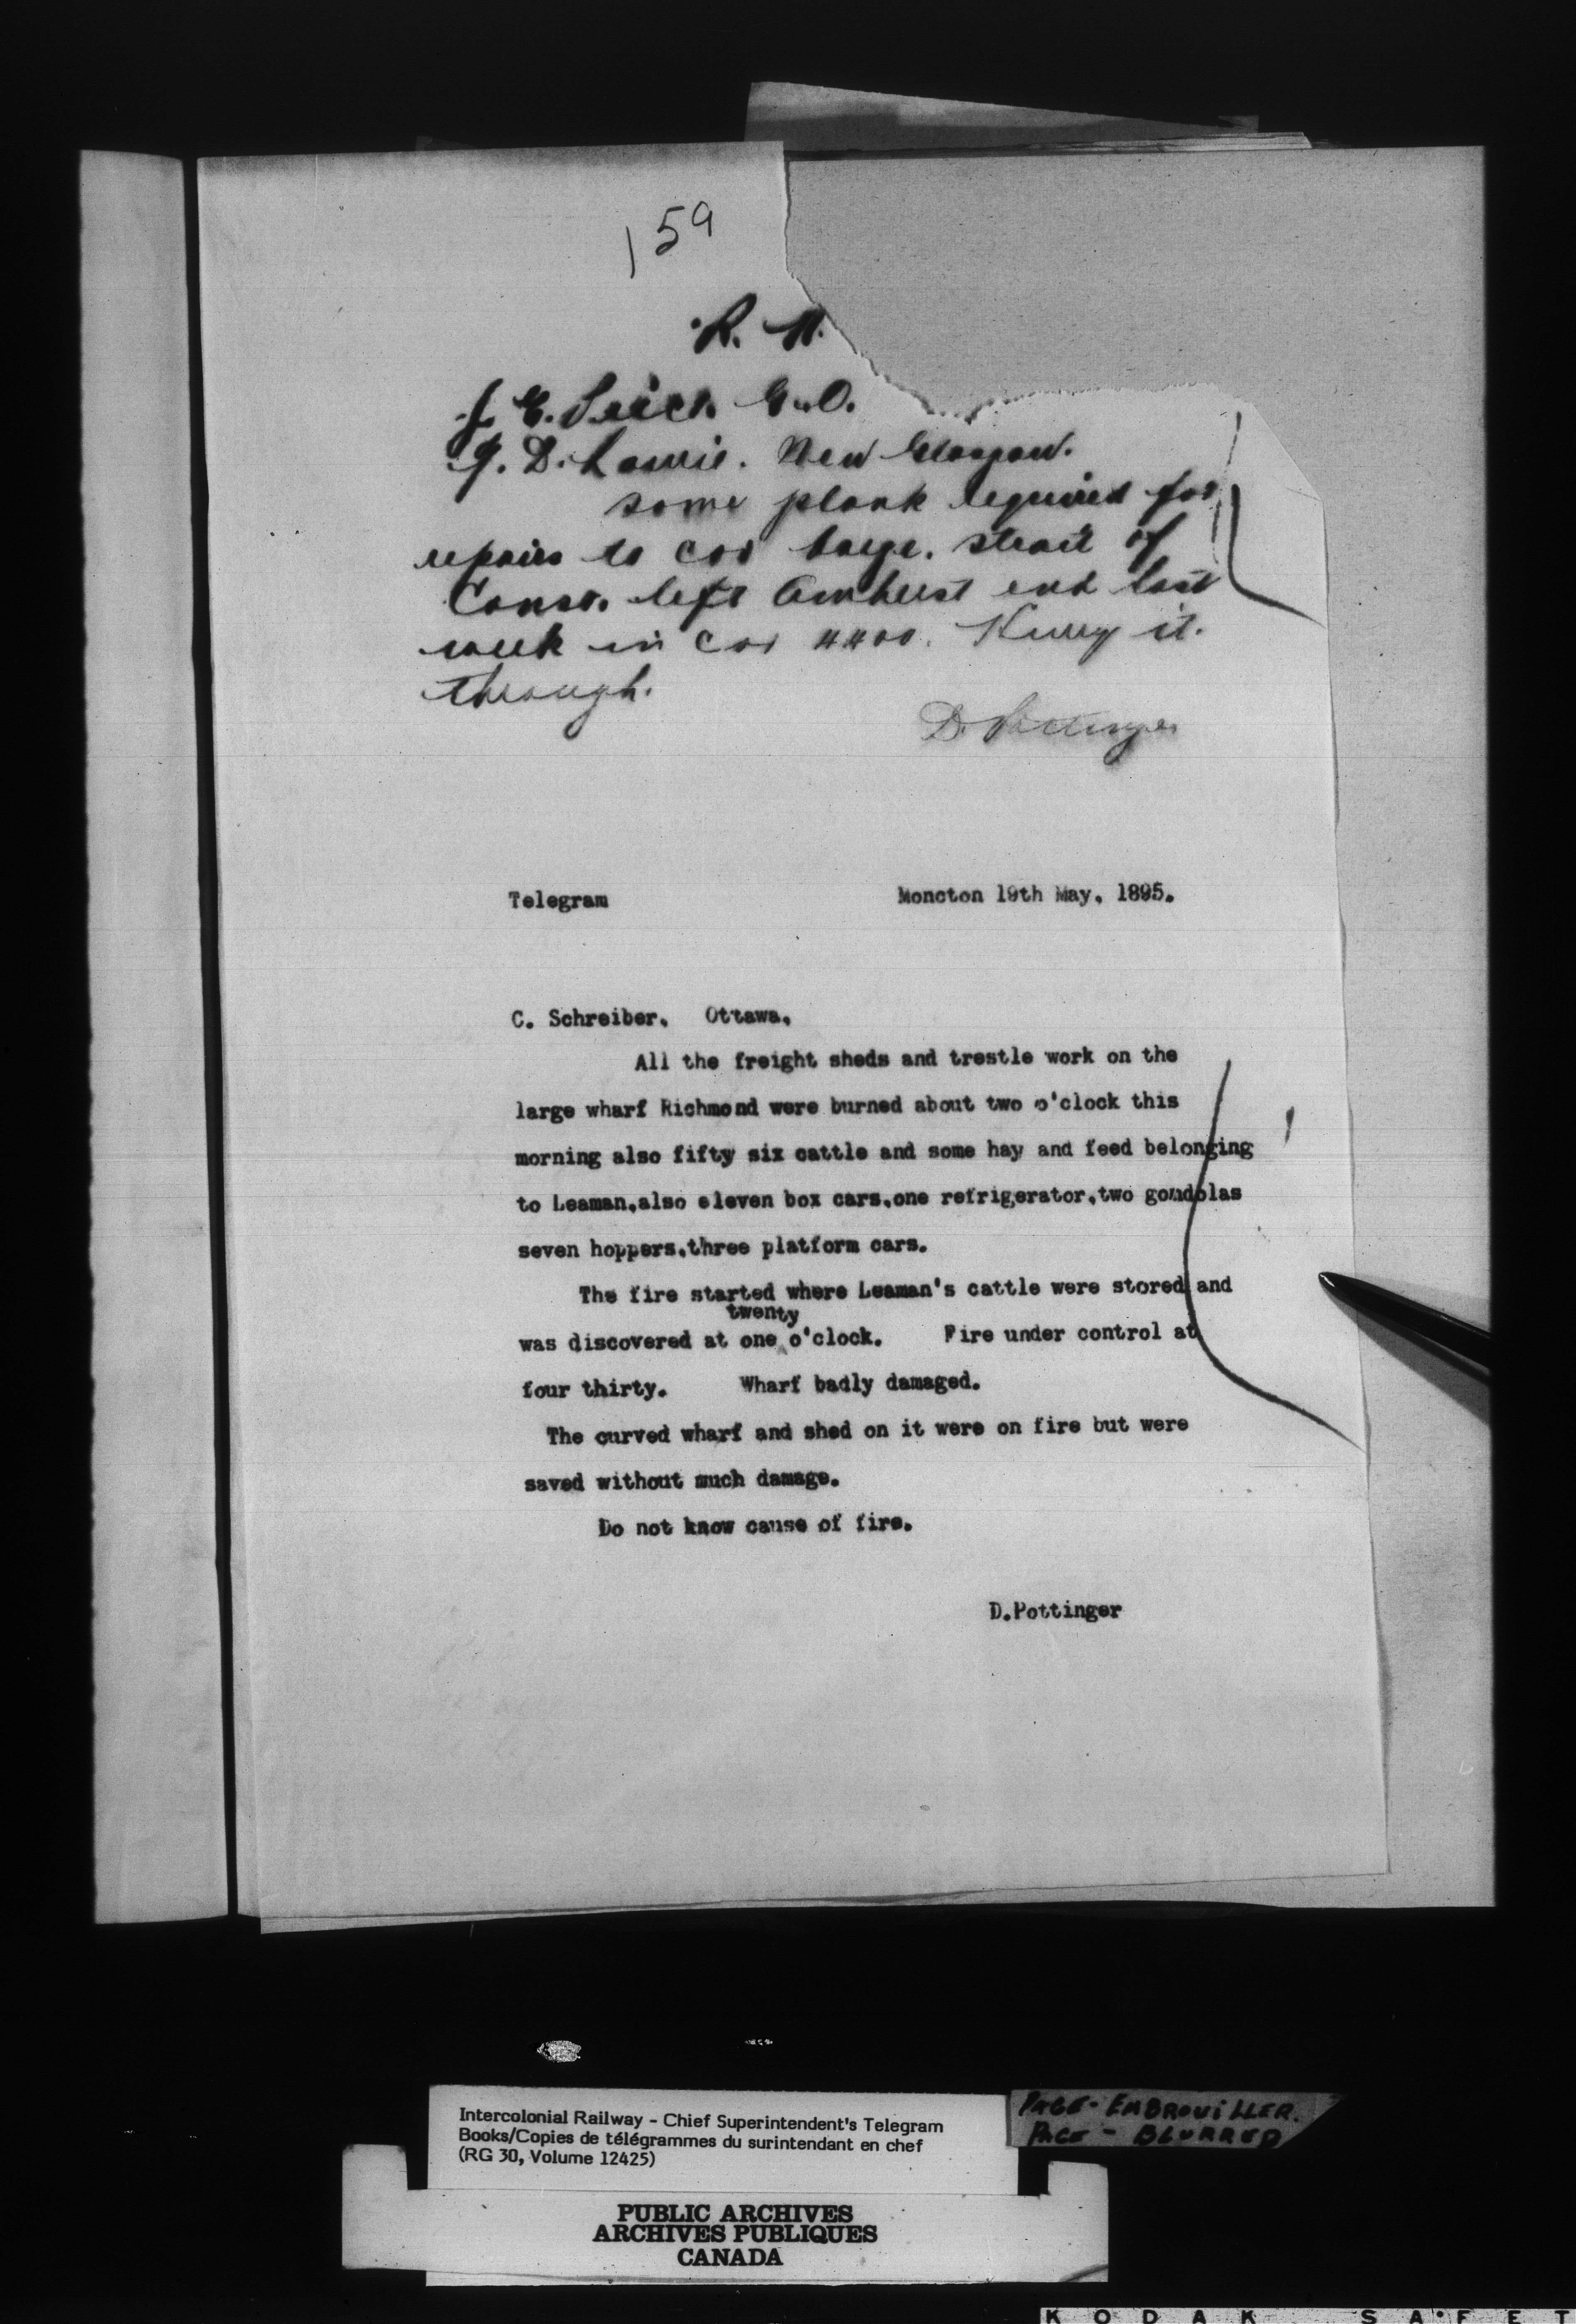 159
R. M.
J. E. Price. G.O.
J. D. Lawrie. New Glasgow.
some plank required for
repairs to car barge. Strait of
Canso. left Amherst end last
week in car 4400. Hurry it.
through.
D. Pottinger
Telegram Moncton 19th May, 1895.
C. Schreiber. Ottawa.
All the freight sheds and trestle work on the
large wharf Richmond were burned about two o'clock this
morning also fifty six cattle and some hay and feed belonging
to Leaman,also eleven box cars,one refrigerator,two gondolas
seven hoppers,three platform cars.
The fire started where Leaman's cattle were stored and
twenty
was discovered at one o'clock. Fire under control at
four thirty. Wharf badly damaged.
The curved wharf and shed on it were on fire but were
saved without much damage.
Do not know cause of fire.
D.Pottinger
Intercolonial Railway - Chief Superintendent's Telegram
Books/Copies de télégrammes du surintendant en chef
(RG 30, Volume 12425)
PAGE - EMBROUILLER.
PAGE - BLURRED
PUBLIC ARCHIVES
ARCHIVES PUBLIQUES
CANADA
KODAK SAFET